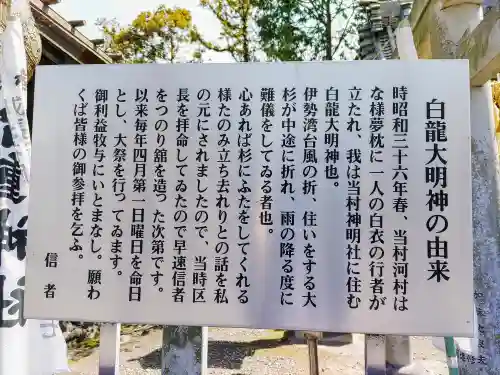 白龍大明神の由来
時昭和三十六年春、当村河村は
な様夢枕に一人の白衣の行者が
立たれ、我は当村神明社に住む
白龍大明神也。
伊勢湾台風の折、住いをする大
杉が中途に折れ、雨の降る度に
難儀をしてゐる者也。
心あれば杉にふたをしてくれる
様たのみ立ち去れりとの話を私
の元にされましたので、当時区
長を拝命してゐたので早速信者
をつのり舘を造った次第です。
以来毎年四月第一日曜日を命日
とし、大祭を行ってゐます。
御利益牧与にいとまなし。願わ
くば皆様の御参拝を乞ふ。
信者